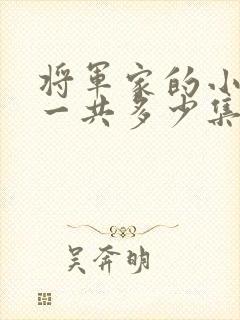 将军家的小
一共多少集
吴奔明